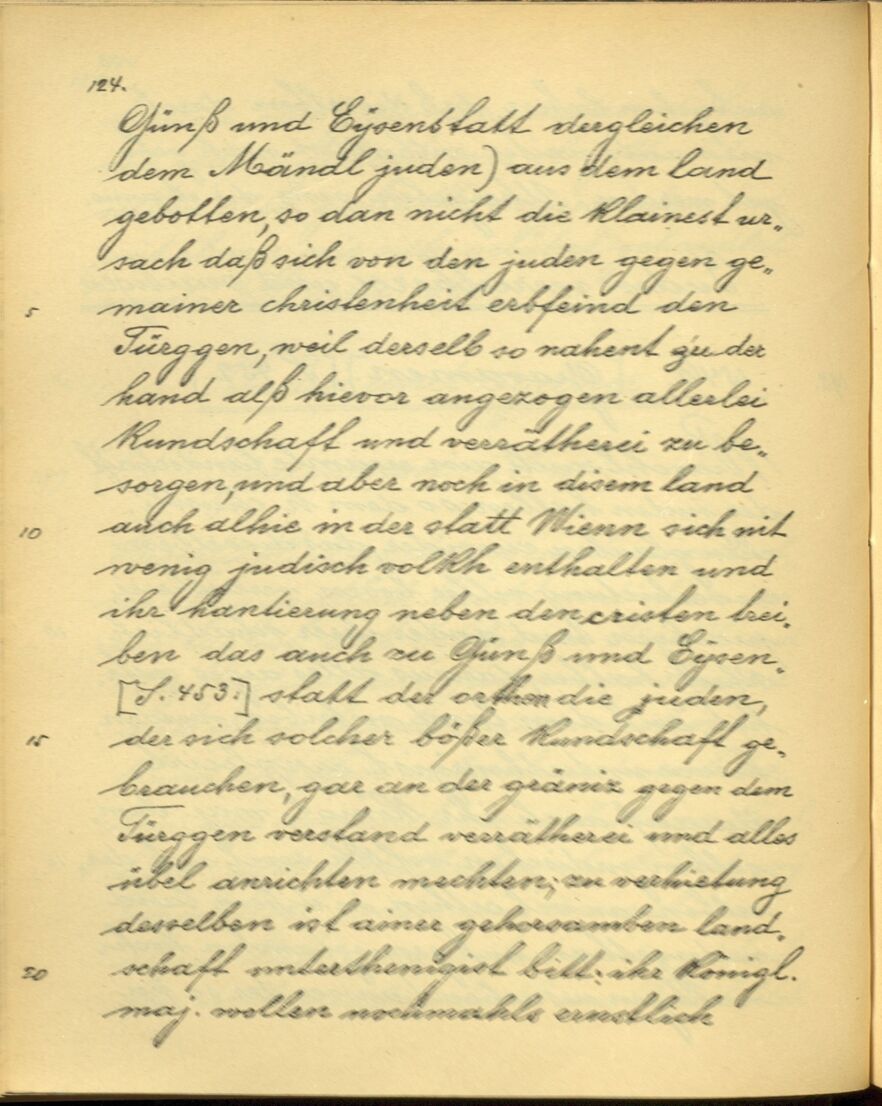 124.
Günß und Eÿsenstatt dergleichen
dem Mändl juden) aus dem land
gebotten, so dan nicht die klainest ur„
sach daß sich von den juden gegen ge„
5 mainer christenheit erbfeind den
Türggen, weil derselb so nahent zu der
hand alß hievor angezogen allerlei
Kundschaft und verrätherei zu be„
sorgen, und aber noch in disem land
10 auch alhie in der statt Wienn sich nit
wenig judisch volkh enthalten und
ihr hantierung neben den cristen trei„
ben das auch zu Günß und Eÿsen„
[S. 453.] statt der orthen die juden,
15 der sich solcher bößer Kundschaft ge„
brauchen, gar an der gräniz gegen dem
Türggen verstand verrätherei und alles
übel anrichten mechten; zu verhietung
desselben ist ainer gehorsamben land„
20 schaft unterthenigist bitt: ihr königl.
maj. wollen nochmahls ernstlich